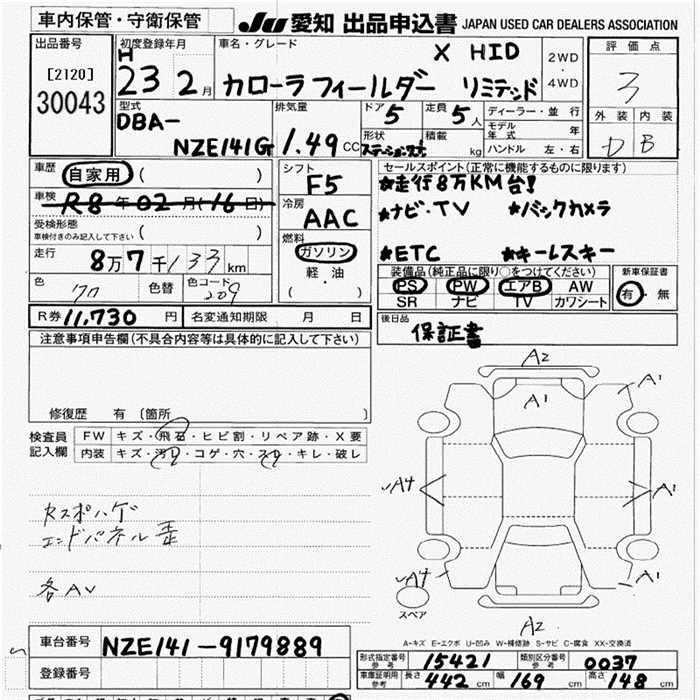 車内保管・守衛保管
JU 愛知 出品申込書 JAPAN USED CAR DEALERS ASSOCIATION
出品番号
[2120]
30043
初度登録年月
H
23 2月
車名・グレード
X HID
カローラフィールダー リミテッド
2WD
・
4WD
評価点
3
外装 内装
D B
型式
DBA-
NZE141G
排気量
1.49 CC
ドア 5
定員 5 人
形状
積載 kg
ディーラー・並行
モデル年式 年
ハンドル 左・右
車歴 自家用 ( )
車検 R8年02月(16日)
受検形式
車検付きのみ記入して下さい ( )
走行
8万7千133km
色
色替
色コード
209
シフト
F5
冷房
AAC
燃料
ガソリン
軽・油
( )
セールスポイント(正常に機能するものに限ります)
★走行8万KM台!
★ナビ・TV ★バックカメラ
★ETC ★キーレスキー
装備品(純正品に限り○をつけてください)
PS PW エアB AW
SR ナビ TV カワシート
新車保証書
有・無
R券 11,730 円
名変通知期限 月 日
後日品
保証書
注意事項申告欄(不具合内容等は具体的に記入して下さい)
修復歴 有 (箇所 )
検査員
記入欄
FW キズ・飛石・ヒビ割・リペア跡・X要
内装 キズ・汚レ・コゲ・穴・スレ・キレ・破レ
エンドパネル
各AV
A2
A1
A1
A4
A1
A4
A1
スペア
A2
A-キズ E-エクボ U-凹み W-補修跡 S-サビ C-腐食 XX-交換済
車台番号 NZE141-9179889
登録番号
形式指定番号
参考
15421
類別区分番号
参考
0037
車庫証明用
参考
長さ 442 cm
幅 169 cm
高さ 148 cm